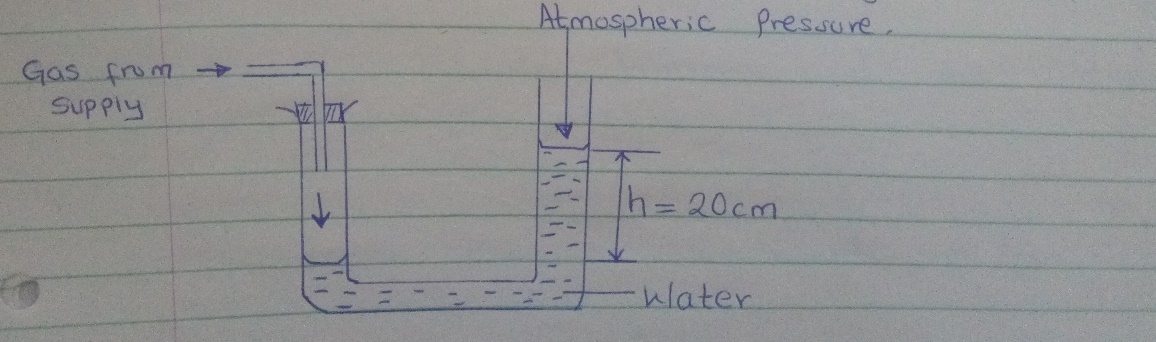 Atmospheric Pressure.
Gas from
supply
h = 20cm
Water